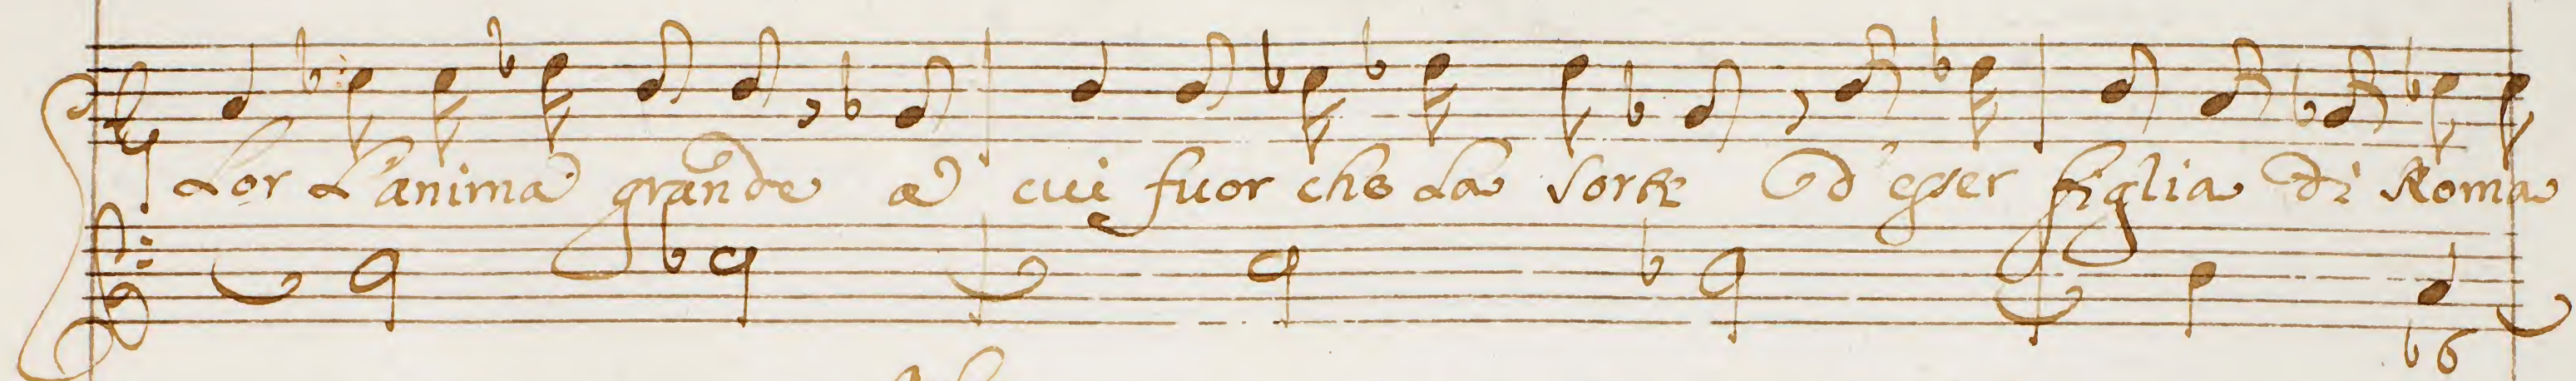 Lor L'anima grande a cui fuor che La sorte D'esser figlia Di Roma
b6